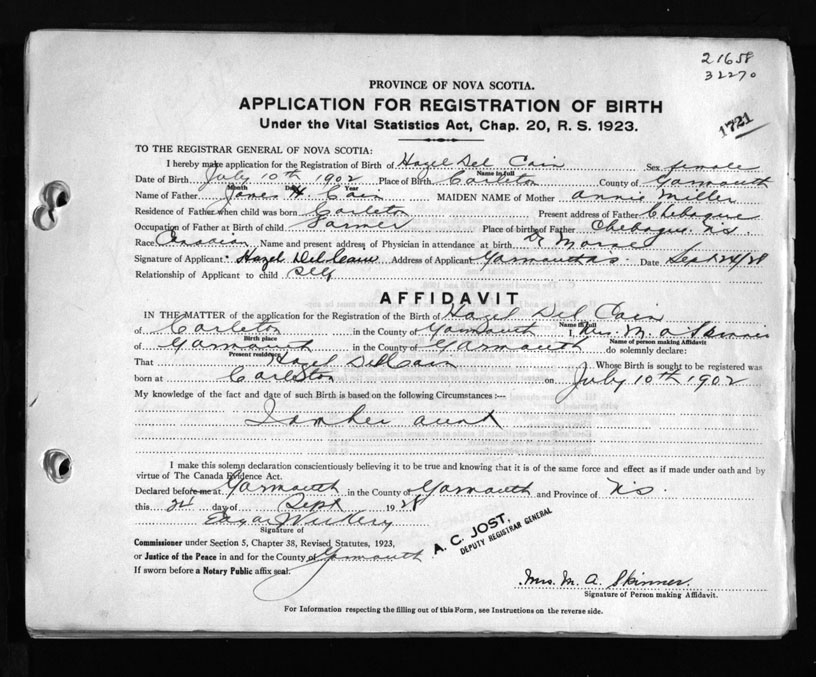 21658
32270
1721
PROVINCE OF NOVA SCOTIA.
APPLICATION FOR REGISTRATION OF BIRTH
Under the Vital Statistics Act, Chap. 20, R. S. 1923.
TO THE REGISTRAR GENERAL OF NOVA SCOTIA:
I hereby make application for the Registration of Birth of Hazel Del Cain Sex female
Name in full
Date of Birth July 10th 1902 Place of Birth Carleton County of Yarmouth
Month Day Year
Name of Father James H Cain MAIDEN NAME of Mother Annie Miller
Residence of Father when child was born Carleton Present address of Father Chebogue
Occupation of Father at Birth of child Farmer Place of birth of Father Chebogue. N.S.
Race Canadian Name and present address of Physician in attendance at birth Dr
Signature of Applicant Hazel Del Cain Address of Applicant Yarmouth N.S. Date Sept 24/28
Relationship of Applicant to child self
AFFIDAVIT
IN THE MATTER of the application for the Registration of the Birth of Hazel Del Cain
Name in full
of Carleton in the County of Yarmouth I, Mrs. M. A Skinner
Birth place Name of person making Affidavit
of Yarmouth in the County of Yarmouth do solemnly declare:
Present residence
That Hazel Del Cain Whose Birth is sought to be registered was
born at Carleton on July 10th 1902
My knowledge of the fact and date of such Birth is based on the following Circumstances :—
I am her aunt
I make this solemn declaration conscientiously believing it to be true and knowing that it is of the same force and effect as if made under oath and by
virtue of The Canada Evidence Act.
Declared before me at Yarmouth in the County of Yarmouth and Province of N.S.
this 24 day of Sept 1928
Signature of
Commissioner under Section 5, Chapter 38, Revised Statutes, 1923,
or Justice of the Peace in and for the County of Yarmouth
If sworn before a Notary Public affix seal.
A. C. JOST,
DEPUTY REGISTRAR GENERAL
Mrs. M. A. Skinner.
Signature of Person making Affidavit.
For Information respecting the filling out of this Form, see Instructions on the reverse side.